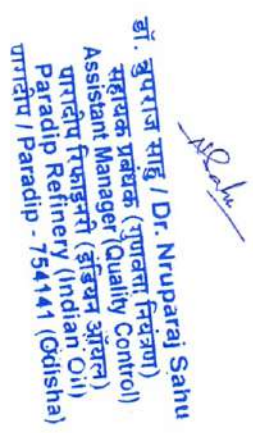 NSahu
डॉ. नृपराज साहु / Dr. Nruparaj Sahu
सहायक प्रबंधक (गुणवत्ता नियंत्रण)
Assistant Manager (Quality Control)
पारादीप रिफाइनरी (इंडियन ऑयल)
Paradip Refinery (Indian Oil)
पारादीप / Paradip - 754141 (Odisha)